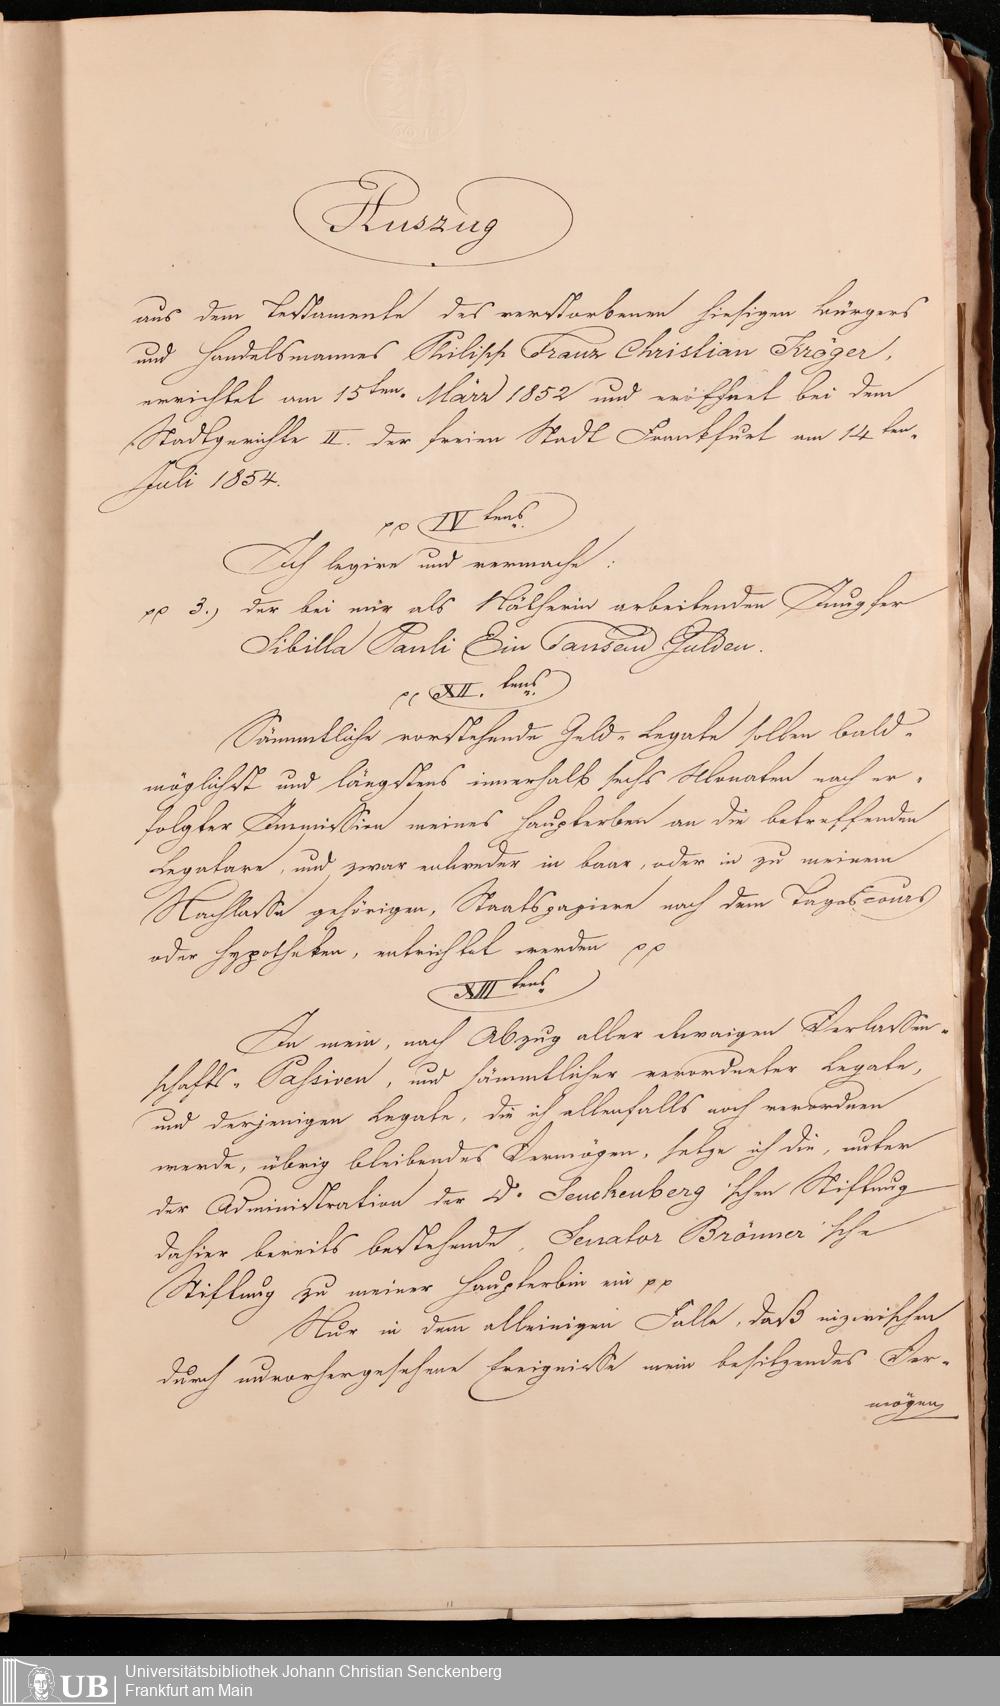 Auszug
aus dem Testamente des verstorbenen hiesigen Bürgers
und Handelsmannes Philipp Franz Christian Kröger,
errichtet am 15ten. März 1852 und eröffnet bei dem
Stadtgerichte II. der freien Stadt Frankfurt am 14ten.
Juli 1854.
pp IVtens.
Ich legire und vermache:
pp 3.) der bei mir als Nätherin arbeitenden Jungfer
Sibilla Pauli Ein Tausend Gulden.
pp XII. tens.
Sämmtliche vorstehende Geld-Legate sollen bald-
möglichst und längstens innerhalb sechs Monaten nach er-
folgter Immission meines Haupterben an die betreffenden
Legatare, und zwar entweder in baar, oder in zu meinem
Nachlasse gehörigen, Staatspapiere nach dem Tagescours
oder Hypotheken, entrichtet werden pp
XIII tens.
In mein, nach Abzug aller etwaigen Verlassen-
schafts-Passiven, und sämmtlicher verordneter Legate,
und derjenigen Legate, die ich allenfalls noch verordnen
werde, übrig bleibendes Vermögen, setze ich die, unter
der Administration der Dr. Senckenberg'schen Stiftung
dahier bereits bestehende, Senator Brönner'sche
Stiftung zu meiner Haupterbin ein pp
Nur in dem alleinigen Falle, daß inzwischen
durch unvorhergesehene Ereignisse mein besitzendes Ver-
mögen
Universitätsbibliothek Johann Christian Senckenberg
Frankfurt am Main
UB